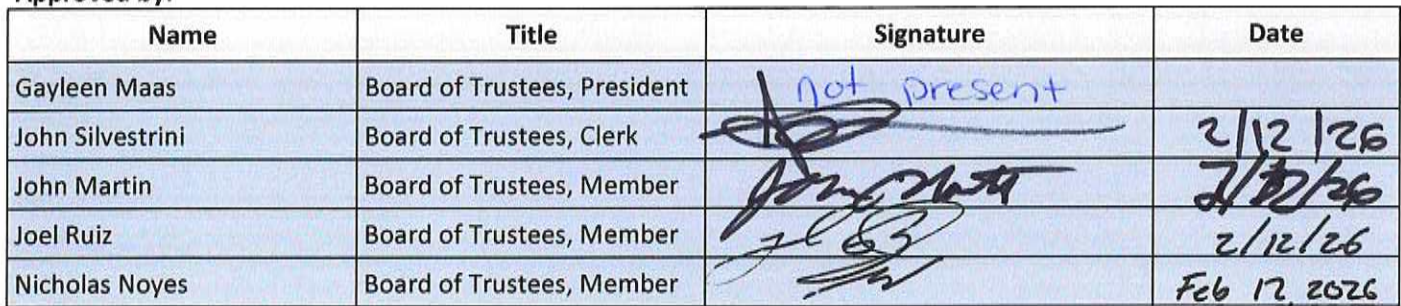 Approved by:
Name Title Signature Date
Gayleen Maas Board of Trustees, President not present
John Silvestrini Board of Trustees, Clerk 2/12/26
John Martin Board of Trustees, Member 2/12/26
Joel Ruiz Board of Trustees, Member 2/12/26
Nicholas Noyes Board of Trustees, Member Feb 12 2026